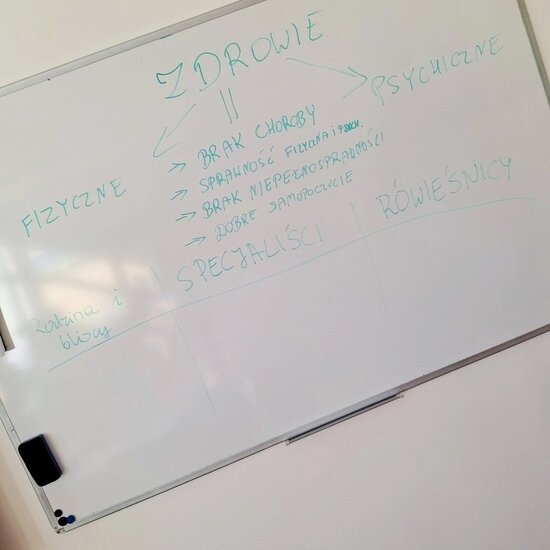 ZDROWIE
FIZYCZNE
PSYCHICZNE
=
→ BRAK CHOROBY
→ SPRAWNOŚĆ FIZYCZNA I PSYCH.
→ BRAK NIEPEŁNOSPRAWNOŚCI
→ DOBRE SAMOPOCZUCIE
Rodzina i
bliscy
SPECJALIŚCI
RÓWIEŚNICY